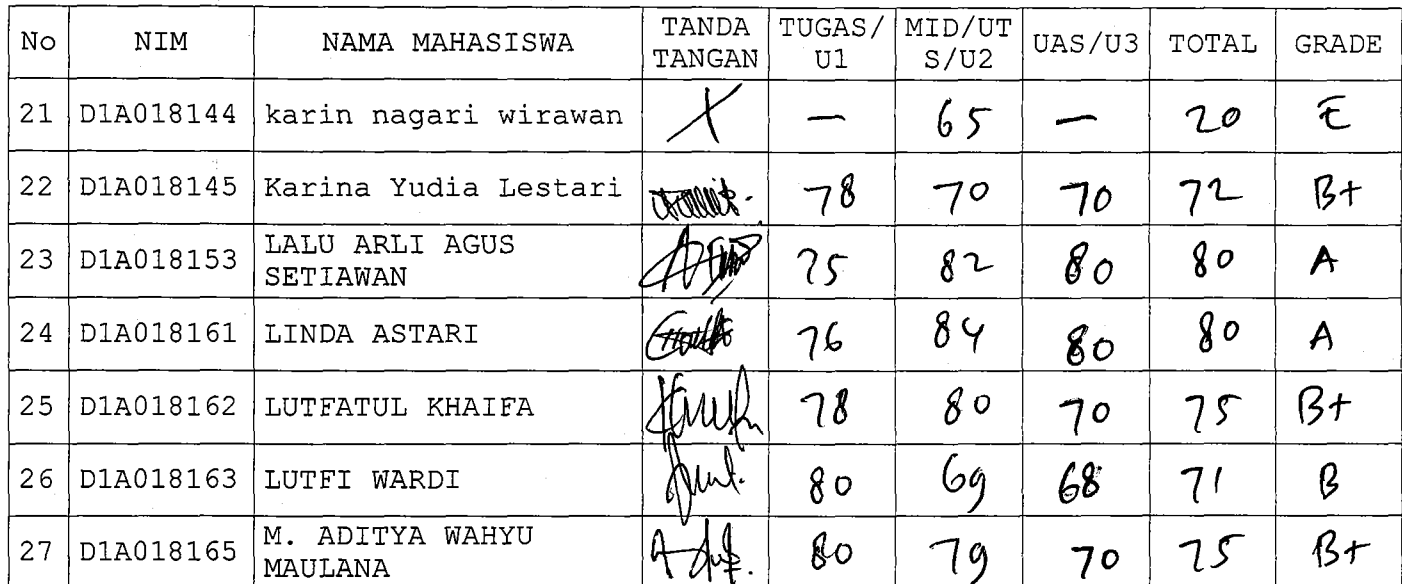 No NIM NAMA MAHASISWA TANDA TANGAN TUGAS/U1 MID/UTS/U2 UAS/U3 TOTAL GRADE
21 D1A018144 karin nagari wirawan X — 65 — 20 E
22 D1A018145 Karina Yudia Lestari 78 70 70 72 B+
23 D1A018153 LALU ARLI AGUS SETIAWAN 75 82 80 80 A
24 D1A018161 LINDA ASTARI 76 84 80 80 A
25 D1A018162 LUTFATUL KHAIFA 78 80 70 75 B+
26 D1A018163 LUTFI WARDI 80 69 68 71 B
27 D1A018165 M. ADITYA WAHYU MAULANA 80 79 70 75 B+